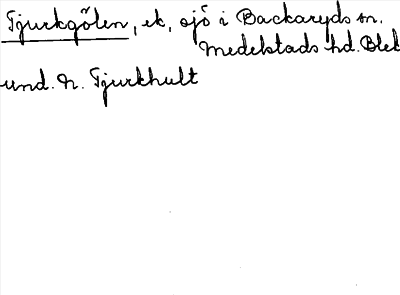 Tjurkgölen, ek, sjö i Backaryds sn.
Medelstads hd. Blek
und. n. Tjurkhult